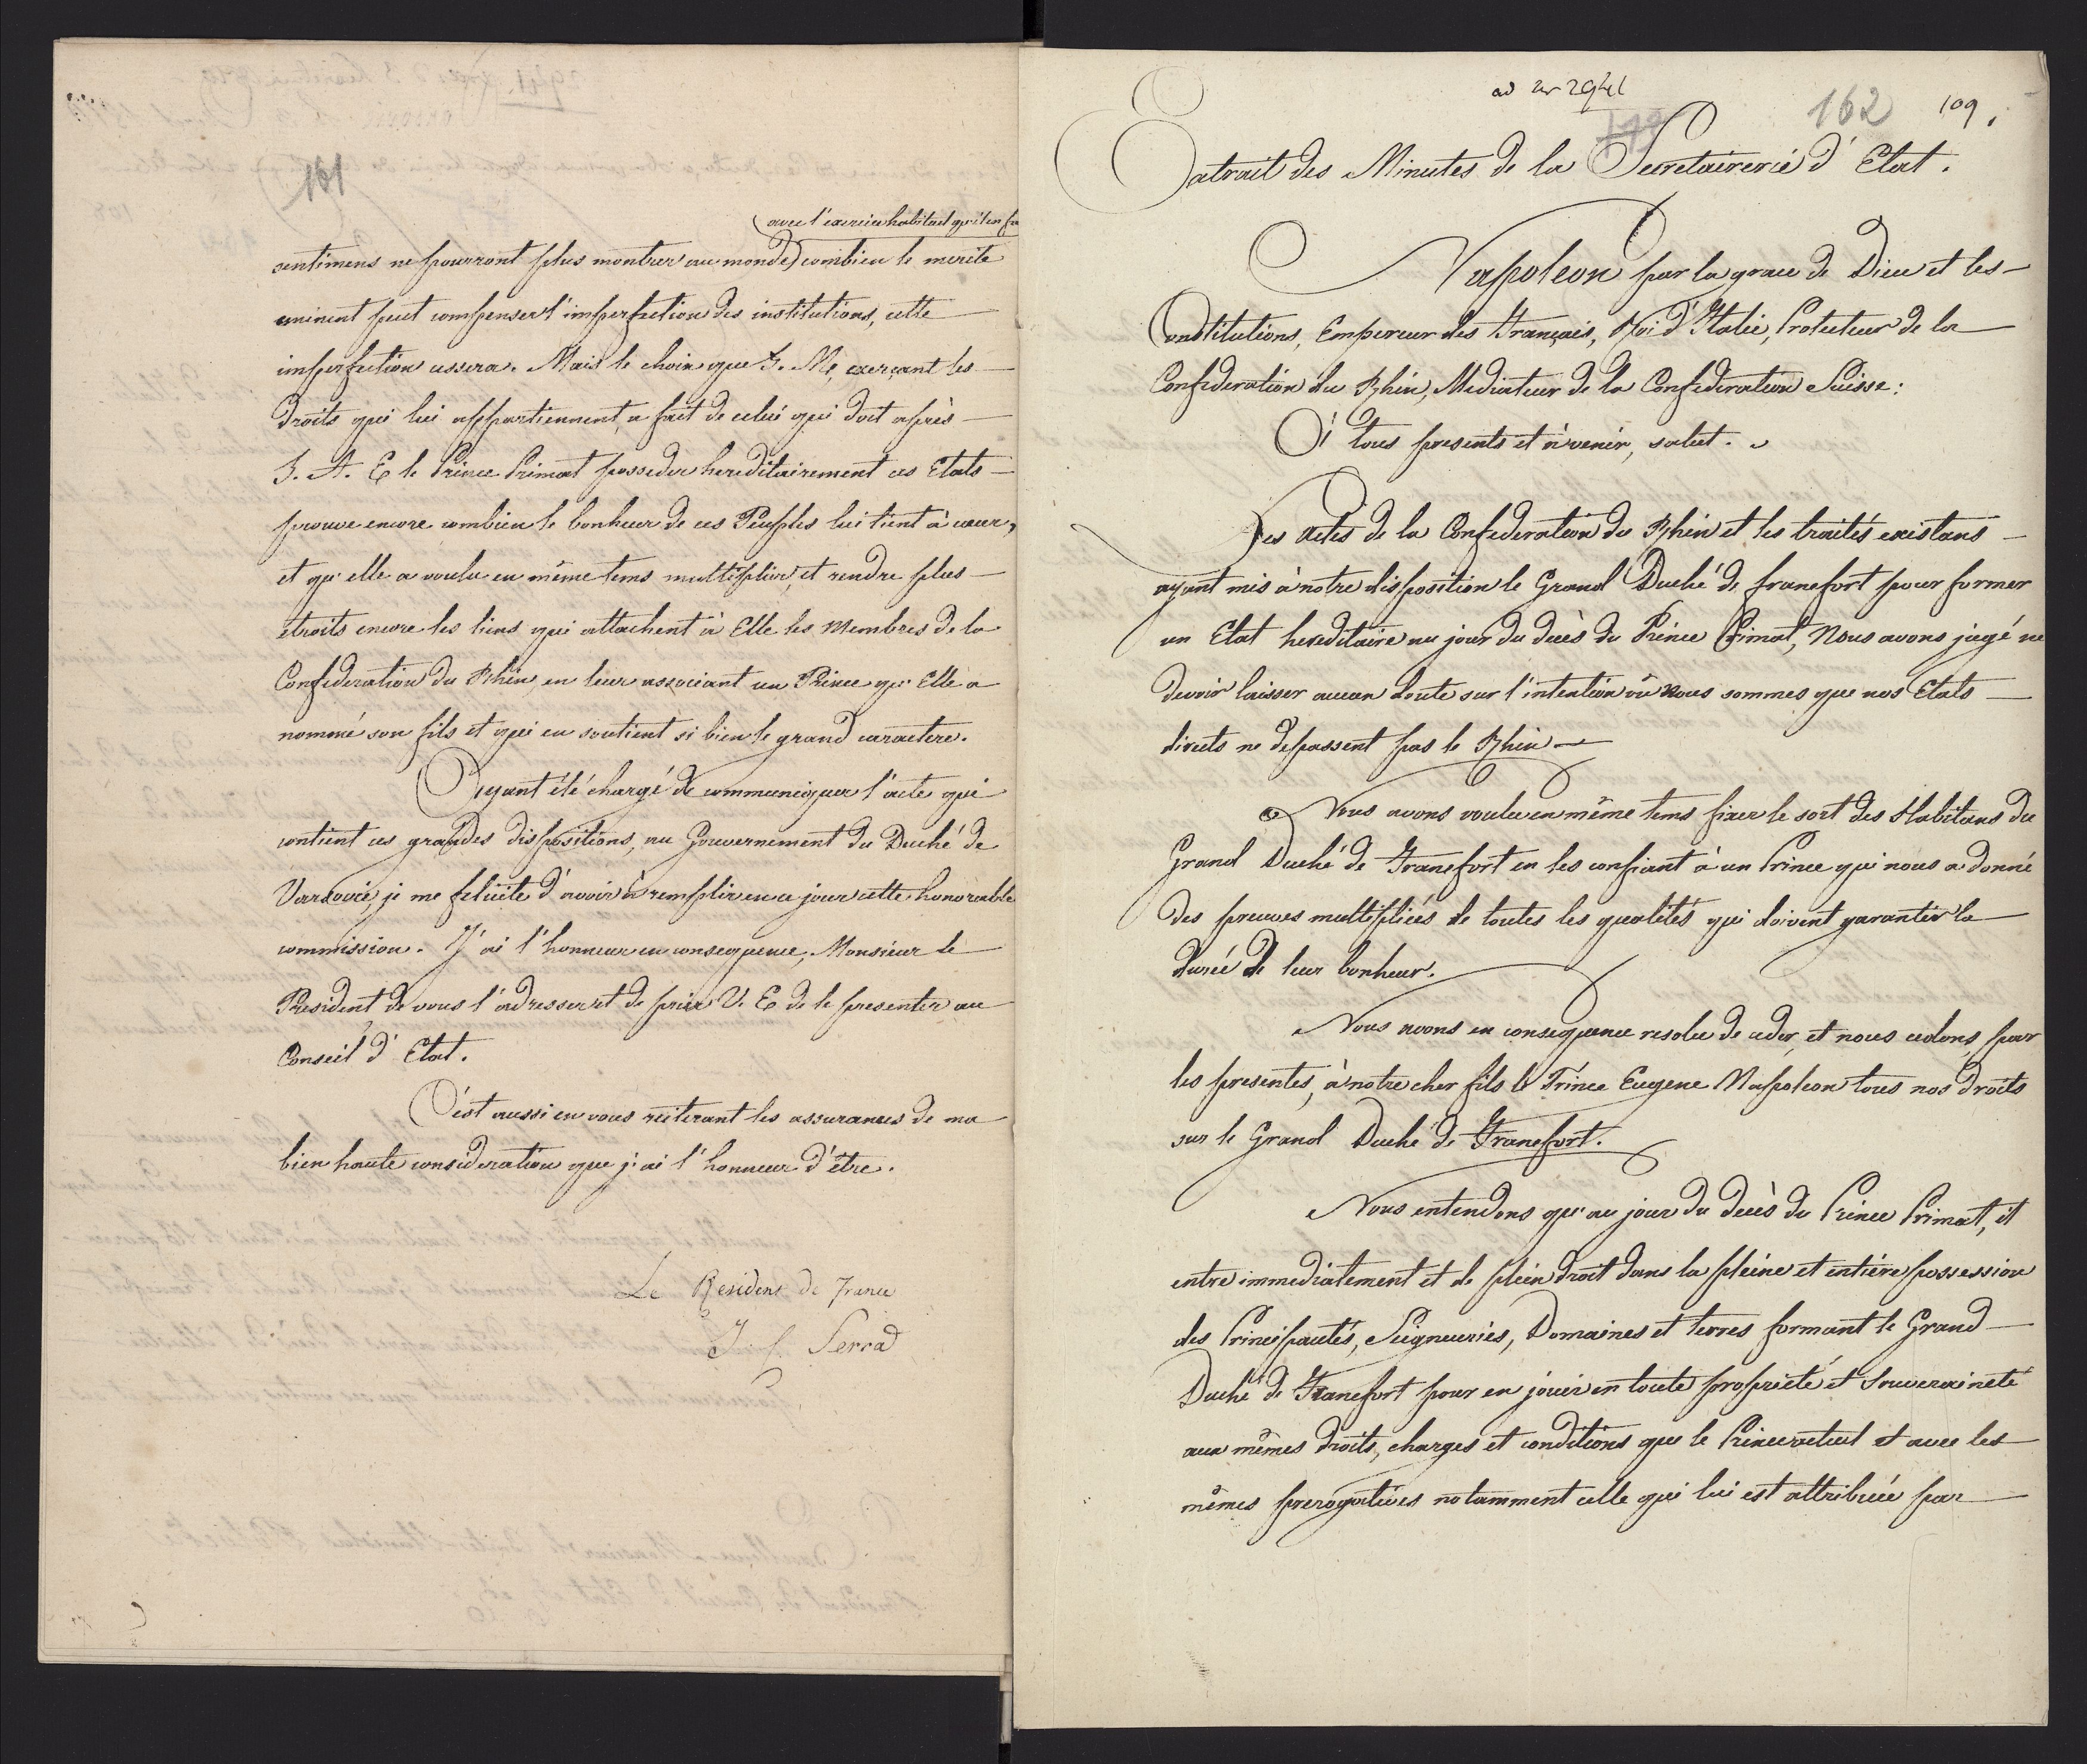 161
(avec l'exercice habituel qu'il en
sentimens ne pourront plus montrer au monde) combien le merite
eminent peut compenser l'imperfection des institutions, cette
imperfection cessera. Mais le choix que S. M. exerçant les
droits qui lui appartiennent, a fait de celui qui doit après
S. A. E le Prince Primat posseder hereditairement ces Etats
prouve encore combien le bonheur de ces Peuples lui tient à cœur,
et qu'elle a voulu en même tems multiplier, et rendre plus
étroits encore les liens qui attachent à Elle les Membres de la
Confederation du Rhin, en leur associant un Prince qu'Elle a
nommé son fils et qui en soutient si bien le grand caractere.
Ayant été chargé de communiquer l'acte qui
contient ces grandes dispositions, au Gouvernement du Duché de
Varsovie, je me felicite d'avoir à remplir en ce jour cette honorable
commission. J'ai l'honneur en consequence, Monsieur le
President de vous l'adresser et de prier V. E de le presenter au
Conseil d'Etat.
C'est aussi en vous reiterant les assurances de ma
bien haute consideration que j'ai l'honneur d'être.
Le Resident de France
Serra
ad nr 2941
162 109.
Extrait des Minutes de la Secretairerie d'Etat.
Napoleon par la grace de Dieu et les
Constitutions, Empereur des Français, Roi d'Italie, Protecteur de la
Confederation du Rhin, Mediateur de la Confederation Suisse:
A tous presents et à venir, salut.
Les actes de la Confederation du Rhin et les traités existans
ayant mis à notre disposition le Grand Duché de francfort pour former
un Etat hereditaire au jour du decès du Prince Primat, Nous avons jugé ne
devoir laisser aucun doute sur l'intention où nous sommes que nos Etats
directs ne depassent pas le Rhin
Nous avons voulu en même tems fixer le sort des Habitans du
Grand Duché de Francfort en les confiant à un Prince qui nous a donné
des preuves multipliées de toutes les qualités qui doivent garantir la
durée de leur bonheur.
Nous avons en consequence resolu de ceder, et nous cedons, par
les presentes, à notre cher fils le Prince Eugene Napoleon tous nos droits
sur le Grand Duché de Francfort.
Nous entendons qu'au jour du decès du Prince Primat, il
entre immediatement et de plein droit dans la pleine et entière possession
des Principautés, Seigneuries, Domaines et terres formant le Grand
Duché de Francfort pour en jouir en toute proprieté et Souveraineté
aux mêmes droits, charges et conditions que le Prince actuel et avec les
mêmes prerogatives notamment celle qui lui est attribuée par